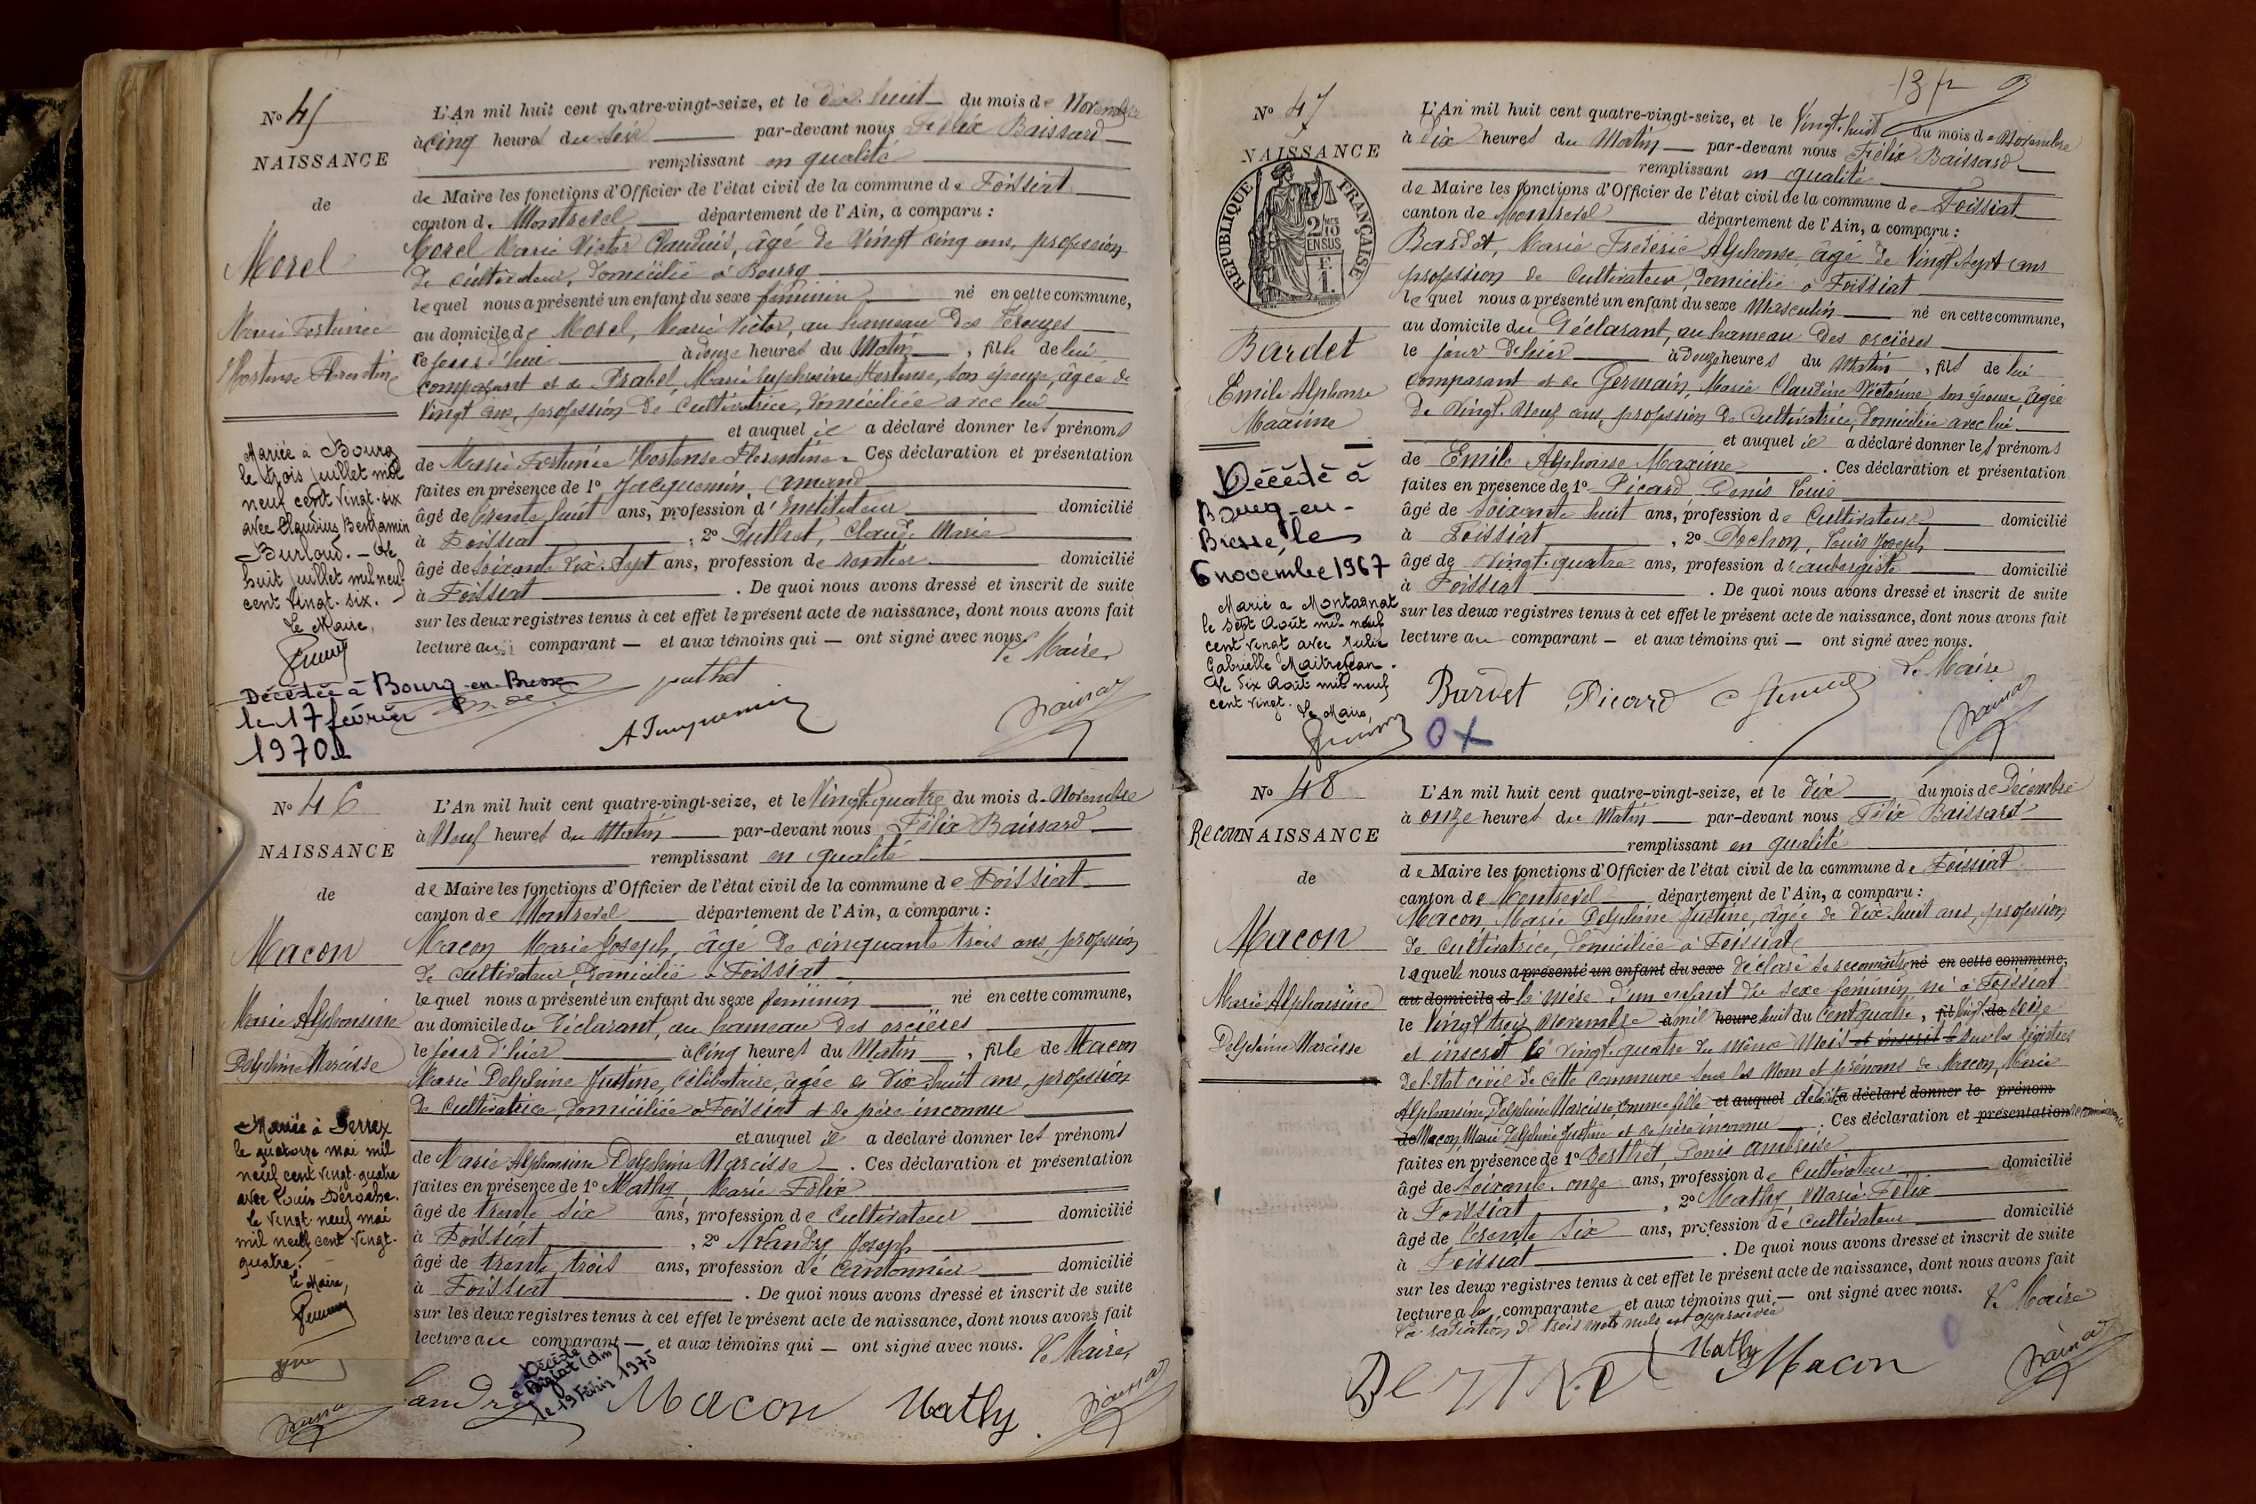 N° 45
NAISSANCE
de
Morel
Marie Fortunée
Hortense Florentine
Mariée à Bourg
le trois juillet mil
neuf cent vingt-six
avec Claudius Benjamin
Burloud. — Le
huit juillet mil neuf
cent vingt-six.
Le Maire,
Décédée à Bourg-en-Bresse
le 17 février
1970
L'An mil huit cent quatre-vingt-seize, et le dix-huit du mois de Novembre
à cinq heures du soir par-devant nous Félix Baissard
remplissant en qualité
de Maire les fonctions d'Officier de l'état civil de la commune de Foissiat
canton de Montrevel département de l'Ain, a comparu :
Morel Marie Victor Claudius, âgé de vingt cinq ans, profession
de cultivateur, domicilié à Bourg
lequel nous a présenté un enfant du sexe féminin né en cette commune,
au domicile de Morel, Marie Victor, au hameau des
ce jour d'hui à douze heures du Matin, fille de lui
comparant et de Marie Euphrosine Hortense, son épouse, âgée de
vingt ans, profession de cultivatrice, domiciliée avec lui
et auquel il a déclaré donner les prénoms
de Marie Fortunée Hortense Florentine. Ces déclaration et présentation
faites en présence de 1° Jacquemin, Amand
âgé de trente huit ans, profession d'Instituteur domicilié
à Foissiat, 2° Puthet, Claude Marie
âgé de soixante dix-sept ans, profession de rentier domicilié
à Foissiat. De quoi nous avons dressé et inscrit de suite
sur les deux registres tenus à cet effet le présent acte de naissance, dont nous avons fait
lecture au comparant — et aux témoins qui — ont signé avec nous.
Le Maire
puthet
A Jacquemin
N° 46
NAISSANCE
de
Macon
Marie Alphonsine
Delphine Narcisse
Mariée à Serrex
le quatorze mai mil
neuf cent vingt-quatre
avec Louis Deroche.
Le vingt-neuf mai
mil neuf cent vingt-
quatre.
Le Maire,
L'An mil huit cent quatre-vingt-seize, et le vingt quatre du mois de Novembre
à Neuf heures du Matin par-devant nous Félix Baissard
remplissant en qualité
de Maire les fonctions d'Officier de l'état civil de la commune de Foissiat
canton de Montrevel département de l'Ain, a comparu :
Macon Marie Joseph, âgé de cinquante trois ans, profession
de cultivateur, domicilié à Foissiat
lequel nous a présenté un enfant du sexe féminin né en cette commune,
au domicile du déclarant, au hameau des orcières
le jour d'hier à cinq heures du Matin, fille de Macon
Marie Delphine Justine, célibataire, âgée de dix huit ans, profession
de cultivatrice, domiciliée à Foissiat et de père inconnu
et auquel il a déclaré donner les prénoms
de Marie Alphonsine Delphine Narcisse. Ces déclaration et présentation
faites en présence de 1° Mathy, Marie Félix
âgé de trente six ans, profession de cultivateur domicilié
à Foissiat, 2° Joseph
âgé de trente trois ans, profession de cantonnier domicilié
à Foissiat. De quoi nous avons dressé et inscrit de suite
sur les deux registres tenus à cet effet le présent acte de naissance, dont nous avons fait
lecture au comparant — et aux témoins qui — ont signé avec nous.
Le Maire
Décédée
le 19 février 1975
Macon Mathy
13
N° 47
NAISSANCE
RÉPUBLIQUE FRANÇAISE
2/10 EN SUS
Bardet
Emile Alphonse
Maxime
Décédé à
Bourg-en-
Bresse, le
6 novembre 1967
Marié à Montagnat
le sept août mil neuf
cent vingt avec Julie
Gabrielle Maitrejean.
Le dix août mil neuf
cent vingt.
Le Maire,
L'An mil huit cent quatre-vingt-seize, et le vingt-huit du mois de Novembre
à dix heures du Matin par-devant nous Félix Baissard
remplissant en qualité
de Maire les fonctions d'Officier de l'état civil de la commune de Foissiat
canton de Montrevel département de l'Ain, a comparu :
Bardet, Marie Frédéric Alphonse âgé de vingt sept ans
profession de cultivateur, domicilié à Foissiat
lequel nous a présenté un enfant du sexe Masculin né en cette commune,
au domicile du déclarant, au hameau des orcières
le jour d'hier à douze heures du Matin, fils de lui
comparant et de Germain, Marie Claudine Victorine son épouse âgée
de vingt-neuf ans, profession de cultivatrice, domiciliée avec lui
et auquel il a déclaré donner les prénoms
de Emile Alphonse Maxime. Ces déclaration et présentation
faites en présence de 1° Picard, Denis Louis
âgé de soixante huit ans, profession de cultivateur domicilié
à Foissiat, 2° Louis Joseph
âgé de vingt-quatre ans, profession d'aubergiste domicilié
à Foissiat. De quoi nous avons dressé et inscrit de suite
sur les deux registres tenus à cet effet le présent acte de naissance, dont nous avons fait
lecture au comparant — et aux témoins qui — ont signé avec nous.
Le Maire
Bardet Picard
OX
N° 48
ReconNAISSANCE
de
Macon
Marie Alphonsine
Delphine Narcisse
L'An mil huit cent quatre-vingt-seize, et le dix du mois de Décembre
à onze heures du Matin par-devant nous Félix Baissard
remplissant en qualité
de Maire les fonctions d'Officier de l'état civil de la commune de Foissiat
canton de Montrevel département de l'Ain, a comparu :
Macon, Marie Delphine Justine, âgée de dix-huit ans, profession
de cultivatrice, domiciliée à Foissiat
laquelle nous a présenté un enfant du sexe déclaré se reconnaître né en cette commune,
au domicile d la mère d'un enfant du sexe féminin né à Foissiat
le vingt trois Novembre à mil heure huit du cent quatre, fil vingt de seize
et inscrit le vingt-quatre du même mois et inscrit le sur les registres
de l'Etat civil de cette commune sous les nom et prénoms de Macon, Marie
Alphonsine, Delphine Narcisse comme fille et auquel a déclaré donner le prénom
de Macon, Marie Delphine Justine et de père inconnu. Ces déclaration et présentation reconnaissance
faites en présence de 1° Berthet, Denis Ambroise
âgé de soixante-onze ans, profession de cultivateur domicilié
à Foissiat, 2° Mathy, Marie Félix
âgé de trente six ans, profession de cultivateur domicilié
à Foissiat. De quoi nous avons dressé et inscrit de suite
sur les deux registres tenus à cet effet le présent acte de naissance, dont nous avons fait
lecture à la comparante et aux témoins qui — ont signé avec nous.
La radiation de trois mots nuls est approuvée
Le Maire
Mathy Macon